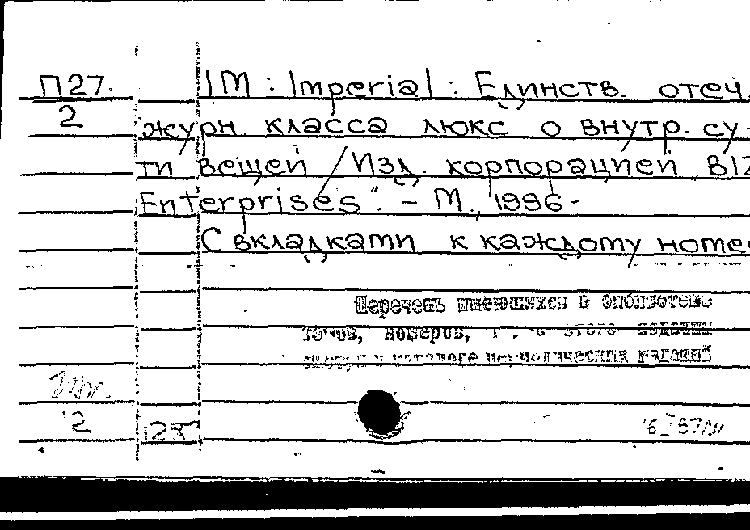 П27. IM : Imperial : Единств. отеч.
2 журн. класса люкс о внутр. су
ти вещей / Изд. корпорацией BIZ
Enterprises". – М., 1996-
С вкладками к каждому номе
Перечень имеющихся в библиотеке
томов, номеров, этого издания
каталоге периодических изданий
2 125